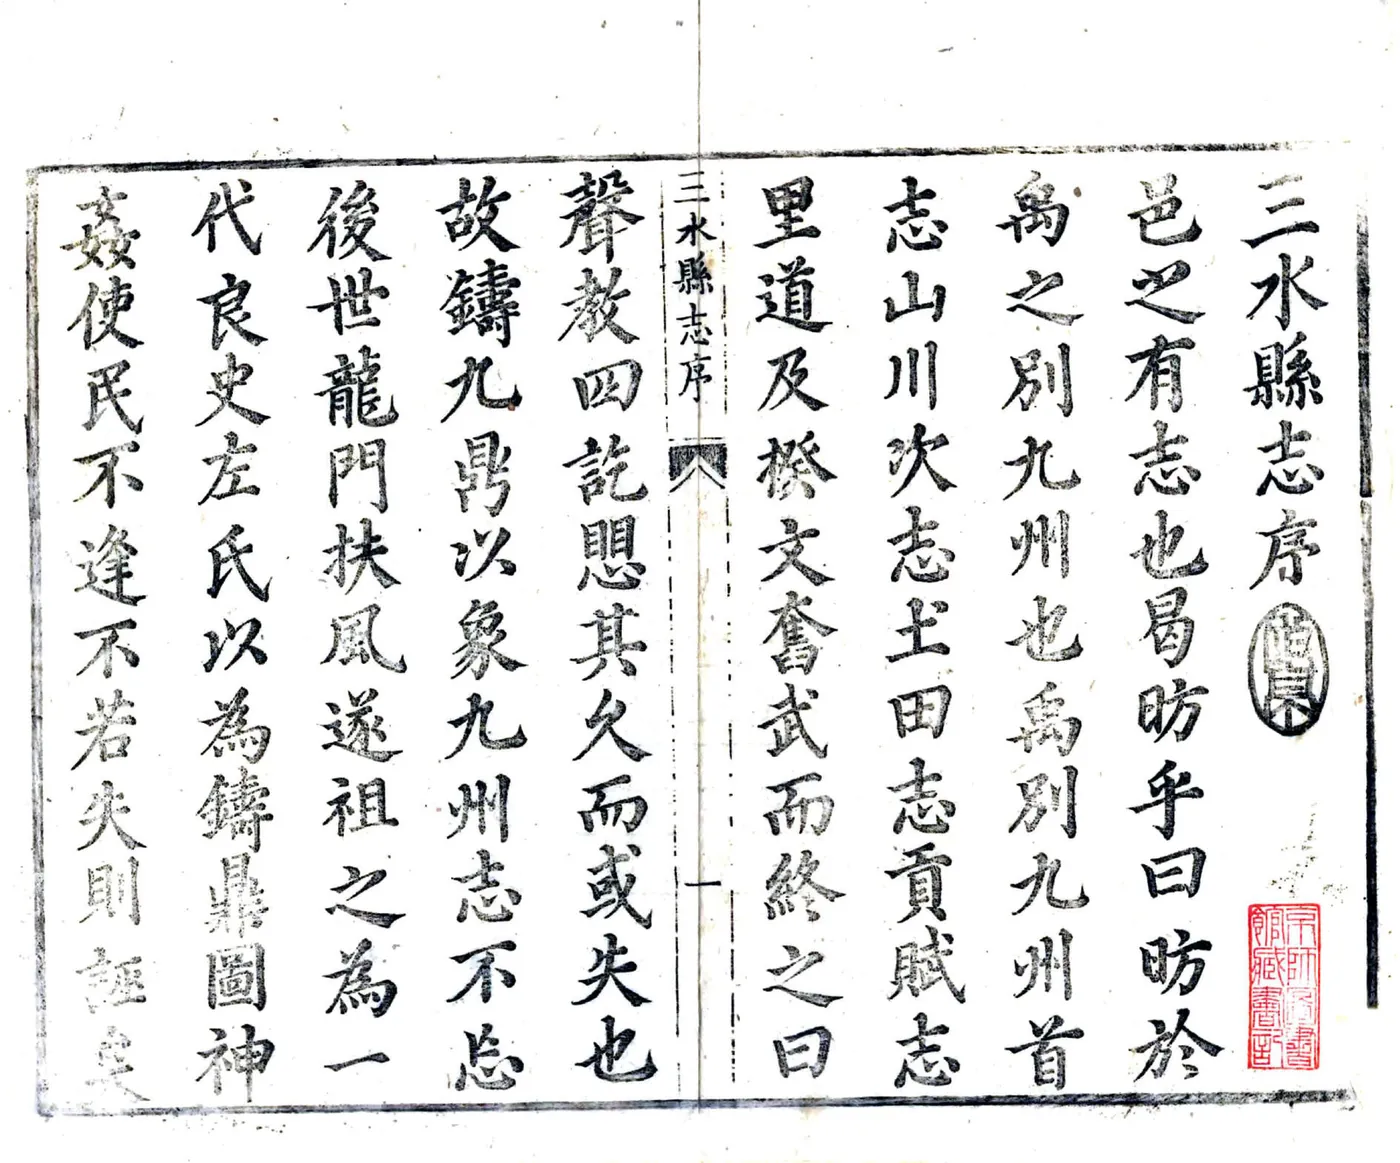 三水縣志序
邑之有志也曷昉乎曰昉於
禹之別九州也禹別九州首
志山川次志土田志貢賦志
里道及揆文奮武而終之曰
三水縣志序
一
聲教四訖思其久而或失也
故鑄九鼎以象九州志不忘
後世龍門扶風遂祖之為一
代良史左氏以為鑄鼎圖神
姦使民不逢不若失則誣矣